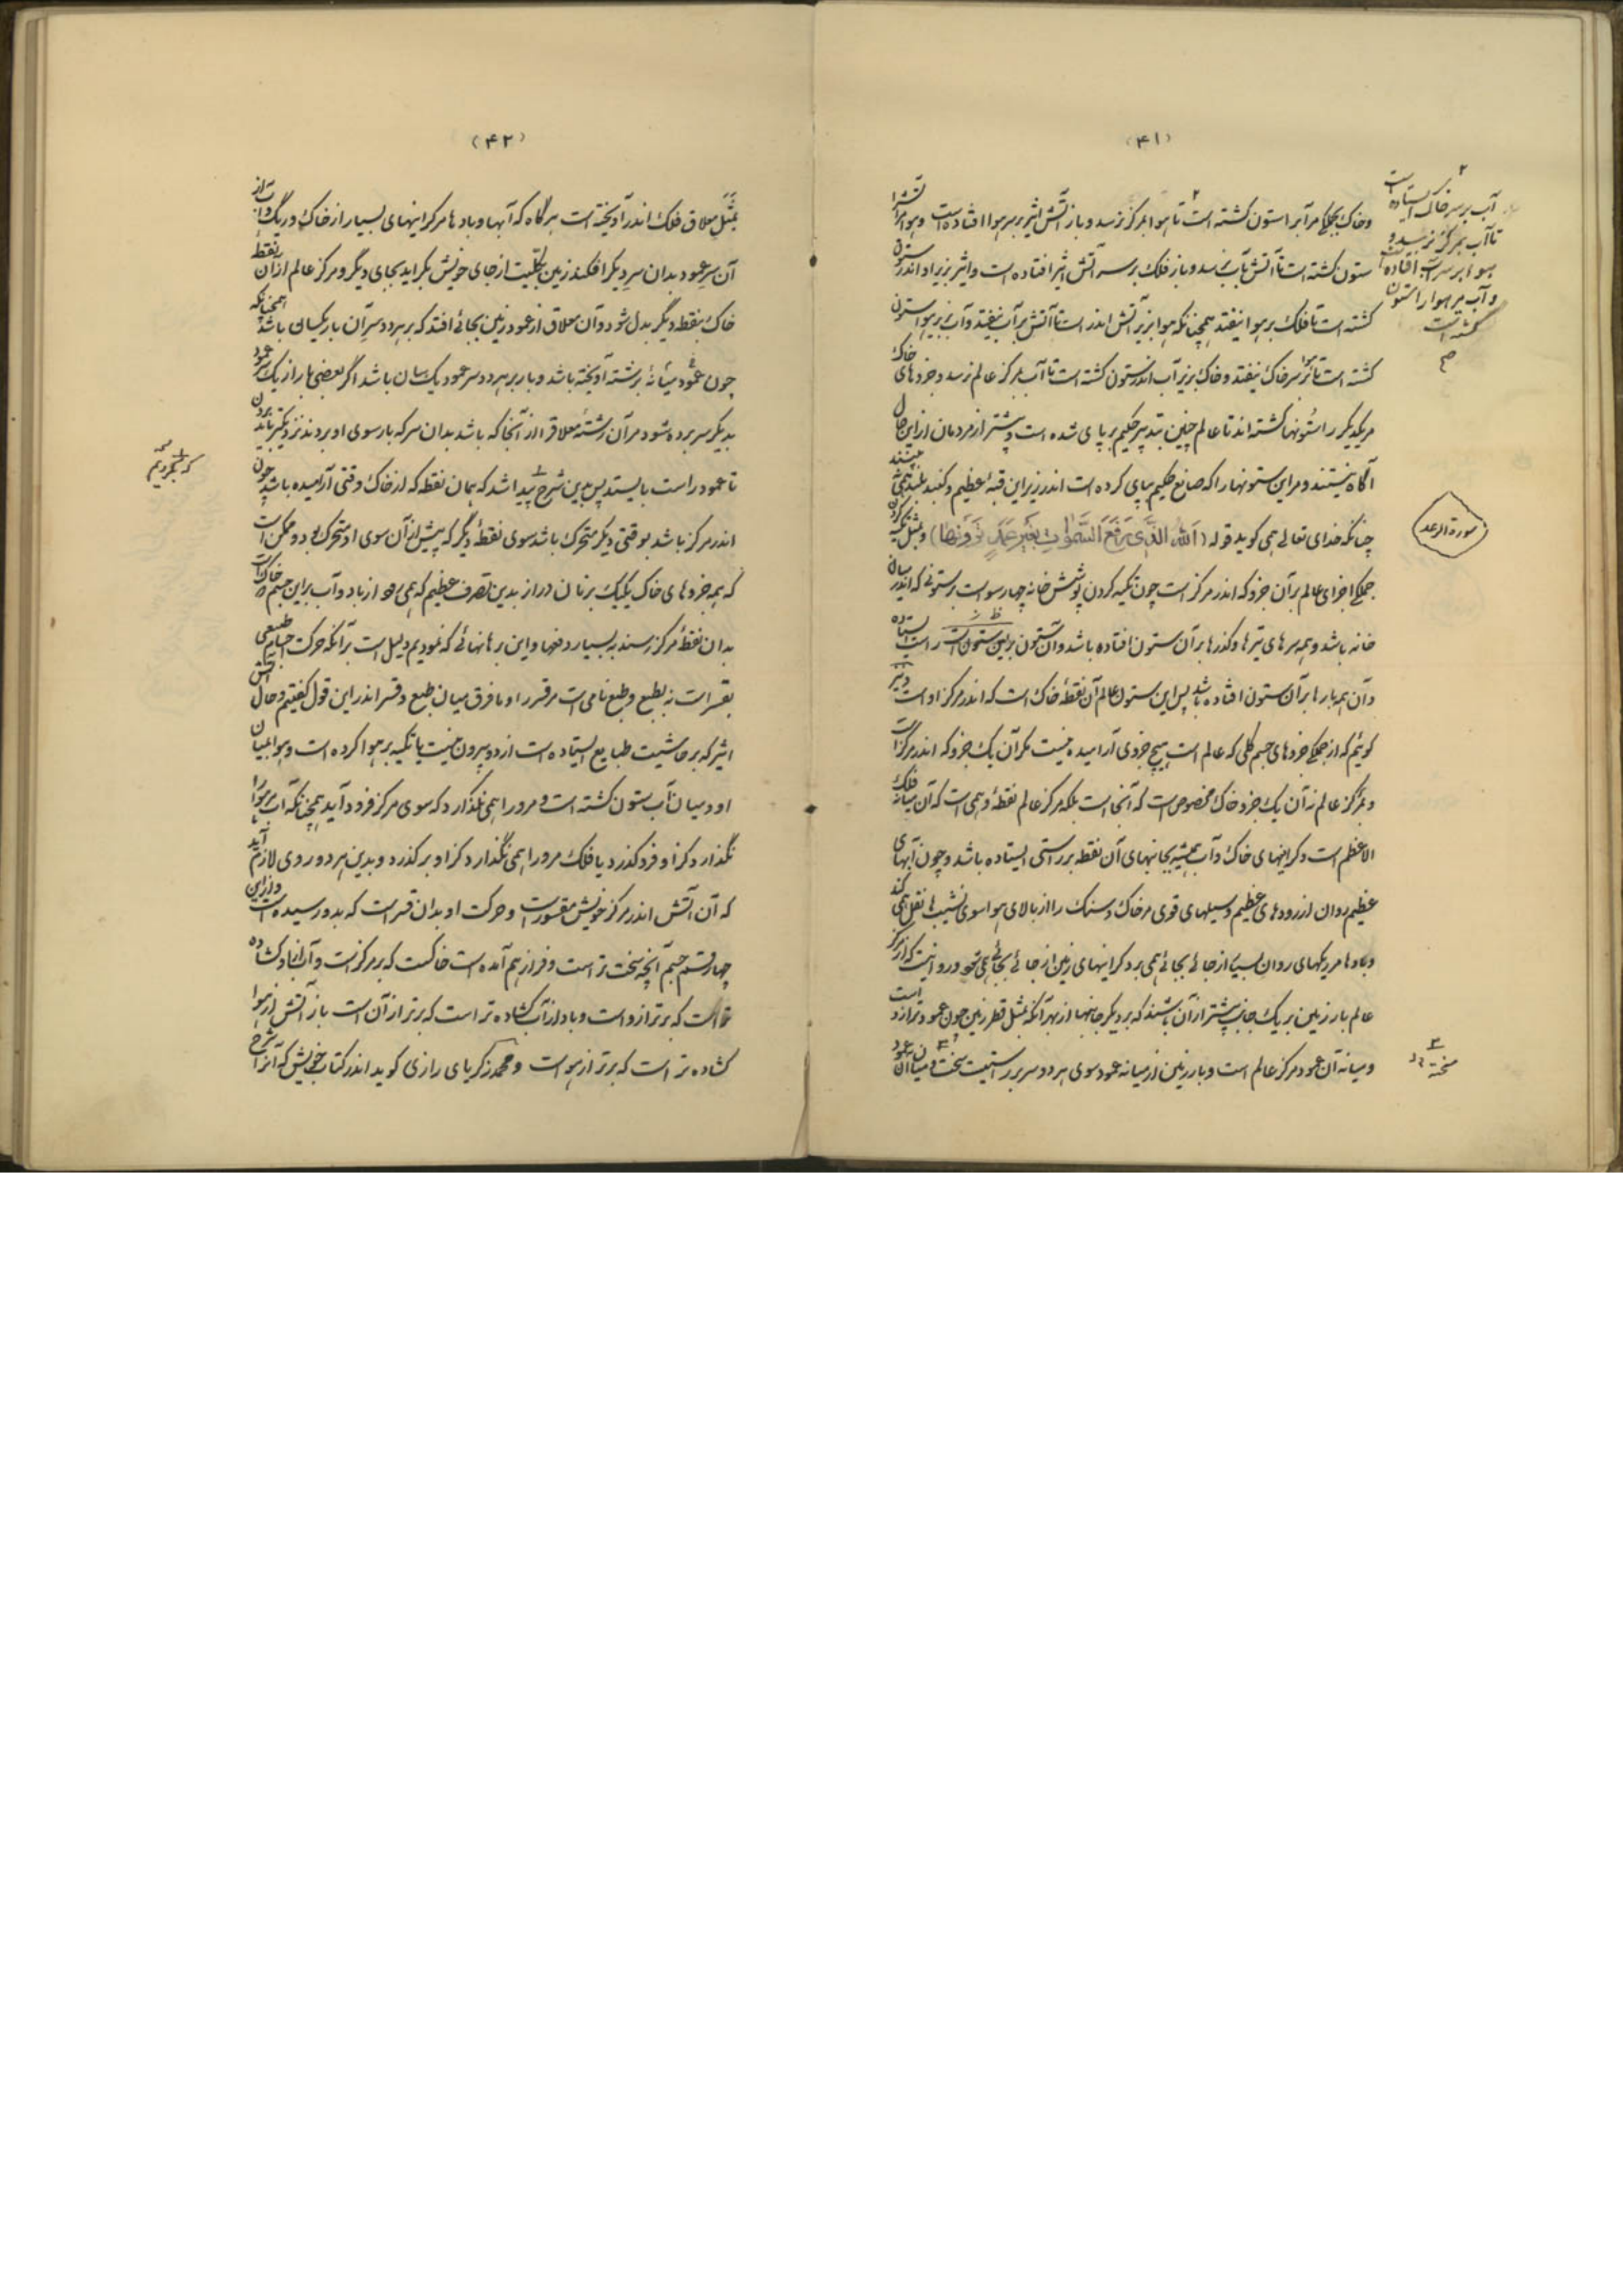 (۴۱)
وخاک بجملگی مر آبرا ستون گشته است تا هوا بمرکز نرسد و باز آتش اثیر بر سر هوا افتاده است وهوا مر آتش را
ستون گشته است تا آتش بآب نرسد و باز فلک بر سر آتش اثیر افتاده است واثیر بزیر او اندر ستون
گشته است تا فلک بر هوا نیفتد همچنانکه هوا بزیر آتش اندر است تا آتش بر آب نیفتد وآب بزیر هوا ستون
گشته است تا هوا بر سر خاک نیفتد وخاک بزیر آب اندر ستون گشته است تا آب بمرکز عالم نرسد وجزوهای خاک
مر یکدیگر را ستونها گشته اند تا عالم چنین بتدبیر حکیم بر پای شده است و بیشتر از مردمان ازین حال
آگاه نیستند ومر این ستونها را که صانع حکیم بپای کرده است اندر زیر این قبهٔ عظیم وگنبد بلند همی نبینند
چنانکه خدای تعالی همی گوید قوله (اَللّٰهُ الَّذِی رَفَعَ السَّمٰوَاتِ بِغَیْرِ عَمَدٍ تَرَوْنَهَا) وبمثل تکیه کردن
جملگی اجزای عالم بر آن جزو که اندر مرکز است چون تکیه کردن پوشش خانه چهارسوست بر ستونی که اندر میان
خانه باشد وهمه سرهای تیرها وگذرها بر آن ستون افتاده باشد وآن ستون بر این ستون راست ایستاده
وآن همه بارها بر آن ستون افتاده باشد پس این ستون عالم آن نقطهٔ خاک است که اندر مرکز اوست ونیز
گوئیم که از جملگی جزوهای جسم کلی که عالم است هیچ جزوی آرامیده نیست مگر آن یک جزو که اندر مرکز است
ومرکز عالم نه آن یک جزو خاک مخصوص است که آنجا است بلکه مرکز عالم نقطهٔ وهمی است که آن میانهٔ فلک
الاعظم است وگرانیهای خاک وآب همیشه بجانبهای آن نقطه بر راستی ایستاده باشد وچون آبهای
عظیم روان از رودهای عظیم وسیلهای قوی مر خاک وسنگ را از بالای هوا سوی نشیب ها نقل همی کند
وبادها مر ریگهای روان بسیار از جائی بجائی همی برد گرانیهای زمین از جائی بجائی همی شود وروا نیست که از مرکز
عالم بار زمین بر یک جانب بیشتر از آن باشند که بر دیگر جانبها از بهر آنکه بمثل قطر زمین چون عمود ترازو است
ومیانه آن عمود مرکز عالم است وبار زمین از میانه عمود سوی هر دو سر بر راستیست سخت ومیان آن عمود
آب بر سر خاک ایستاده است
تا آب بمرکز نرسد و
هوا بر سر آب افتاده است
و آب مر هوا را ستون
گشته است
صح
سورة الرعد
(۴۲)
بمثل معلاق فلک اندر آویخته است هرگاه که آبها وبادها مر گرانیهای بسیار از خاک وریگ واز
آن سر عمود بدان سر دیگر افکند زمین بکلیت از جای خویش بگراید بجای دیگر ومرکز عالم از آن نقطهٔ
خاک بنقطه دیگر بدل شود وآن معلاق از عمود زمین بجائی افتد که بر هر دو سر آن بار یکسان باشد همچنانکه
چون عمود میانهٔ بر رشته آویخته باشد وبار بر هر دو سر عمود یکسان باشد اگر بعضی بار از یک سر عمود
بدیگر سر برده شود مر آن رشتهٔ معلاق را از آنجا که باشد بدان سر که بار سوی او بردند نزدیکتر باید بردن
تا عمود راست بایستد پس بدین شرح پیدا شد که همان نقطه که از خاک وقتی آرامیده باشد چون
اندر مرکز باشد بوقتی دیگر متحرک باشد سوی نقطهٔ دیگر که پیش از آن سوی او متحرک بود وممکن است
که همه جزوهای خاک یکیک بزمان دراز بدین تصرف عظیم که همی رود از باد وآب بر این جسم خاک
بدان نقطهٔ مرکز رسند به بسیار دفعها واین برهانهائی که نمودیم دلیل است بر آنکه حرکت اجسام طبیعی
بقسر است نه بطبع وطبع نامی است مر قسر را وما فرق میان طبع وقسر اندر این قول گفتیم وحال آتش
اثیر که بر حاشیت طبایع ایستاده است از دو بیرون نیست یا تکیه بر هوا کرده است وهوا بمیان
او ومیان آب ستون گشته است ومر او را همی نگذارد که سوی مرکز فرود آید همچنانکه آب مر هوا را
نگذارد کز او فرو گذرد یا فلک مر او را همی نگذارد کز او بر گذرد وبدین هر دو روی لازم آید
که آن آتش اندر مرکز خویش مقسور است وحرکت او بدان قسر است که بدو رسیده است وازین
چهار قسم جسم آنچه سخت تر است وفراز هم آمده است خاکست که بر مرکز است وآب از او گشاده
تر است که برتر ازوست وباد از آب گشاده تر است که برتر از آن است باز آتش از هوا
گشاده تر است که برتر از هواست ومحمد زکریای رازی گوید اندر کتاب خویش که آنرا شرح